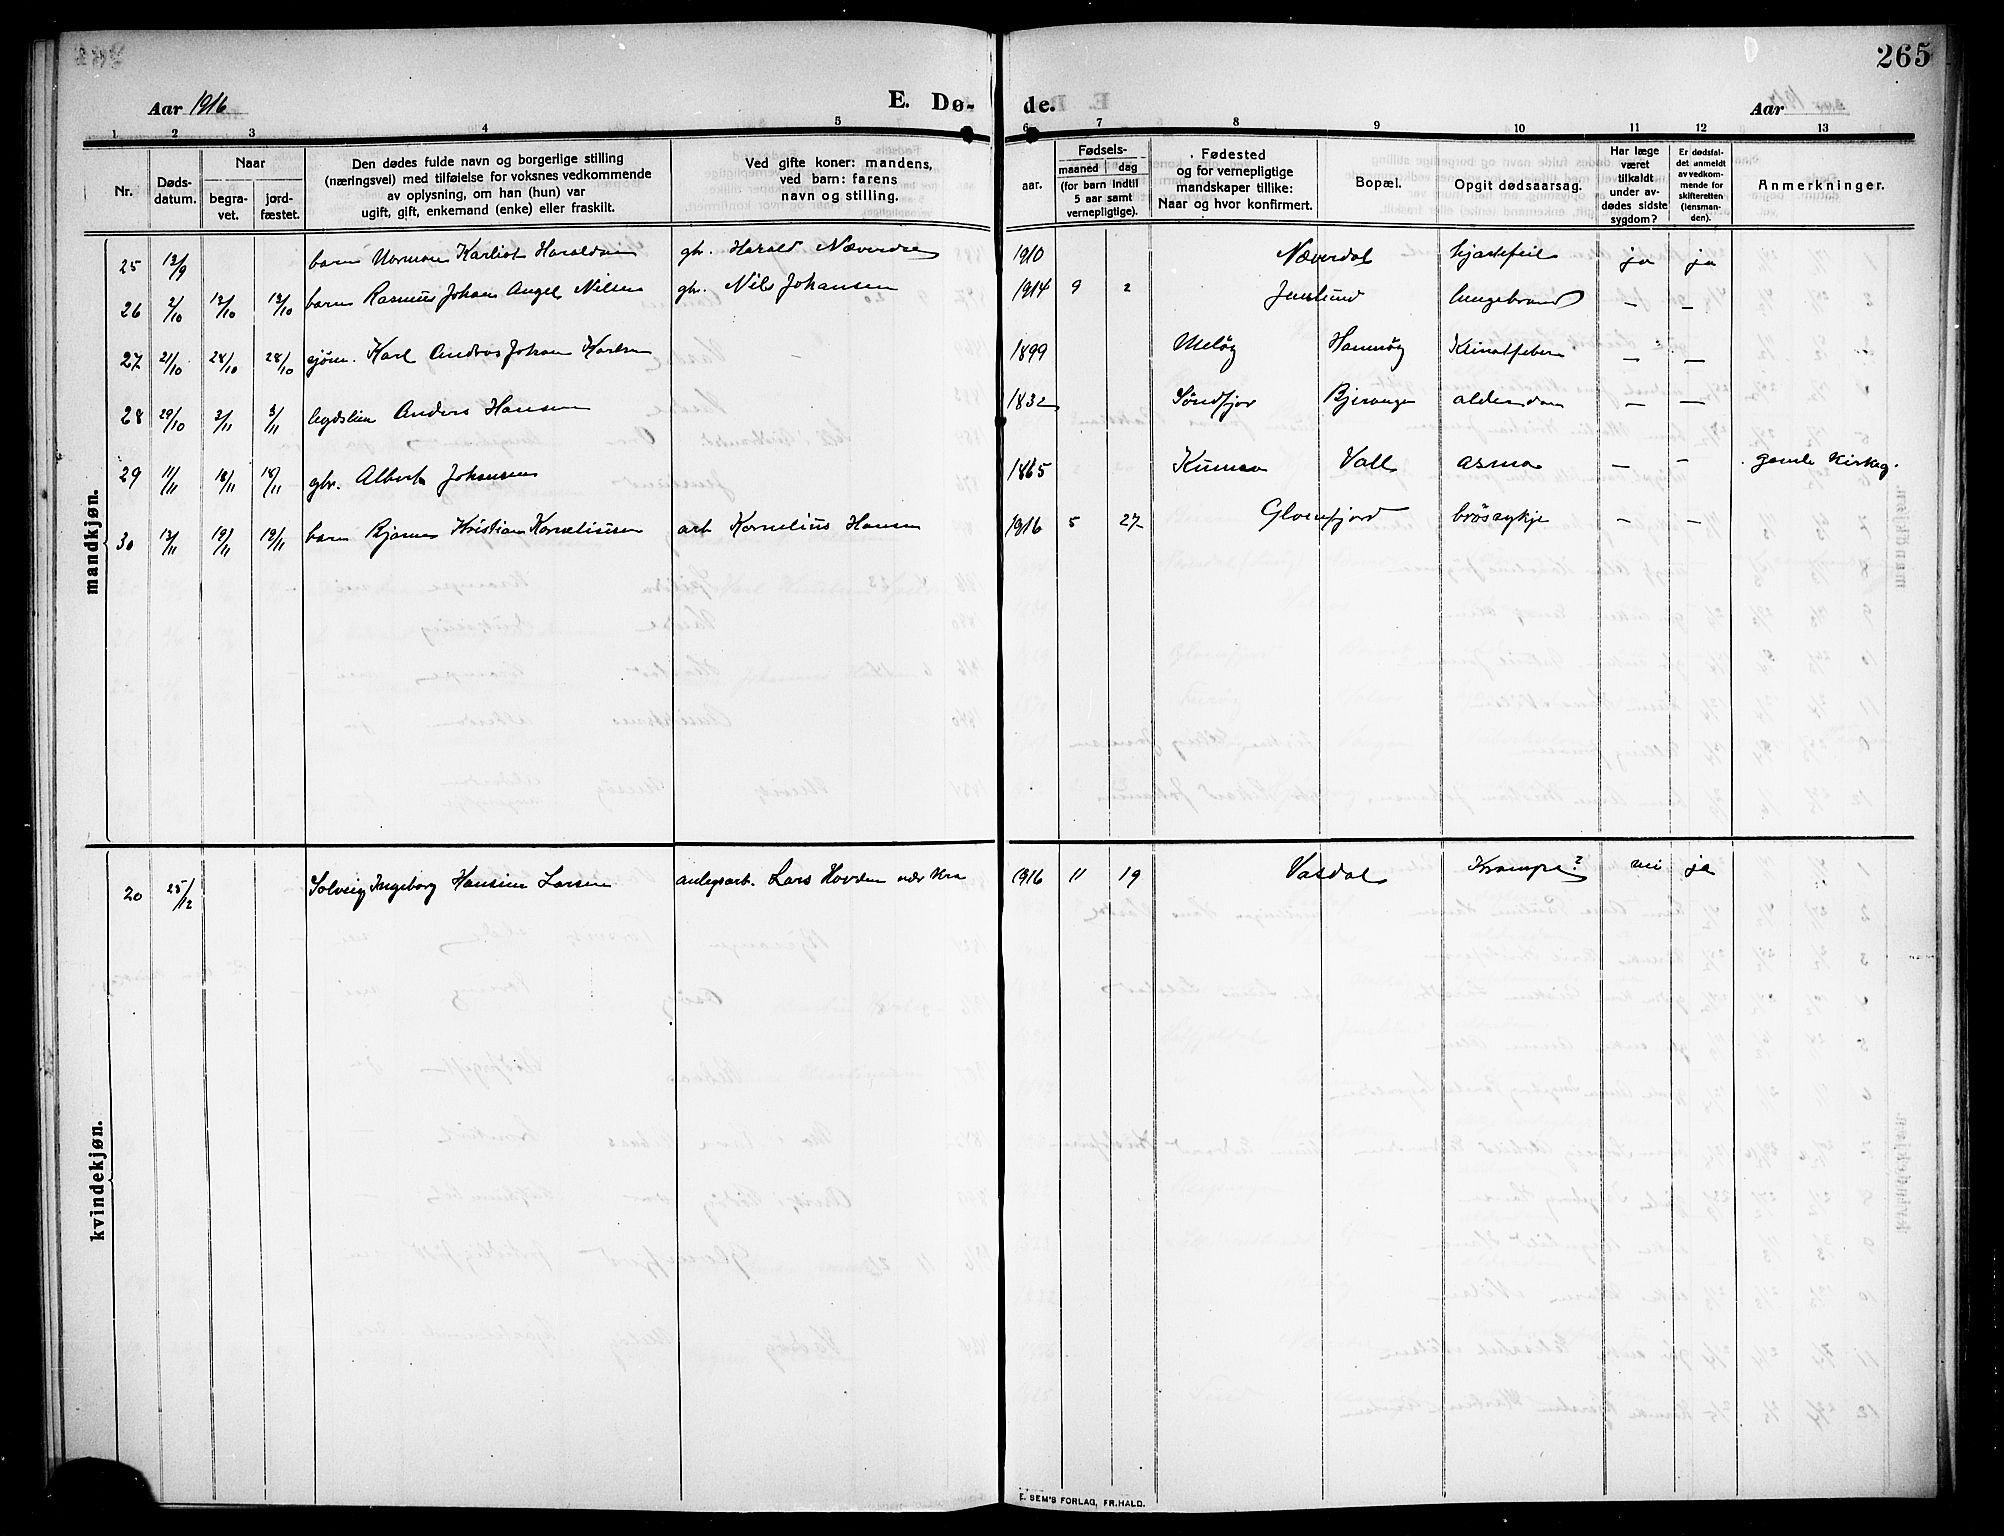 265
Aar 1916 E. Dø- de. Aar
1 2 3 4 5 6 7 8 9 10 11 12 13
Nr. Døds-datum. Naar begra-vet. jord-fæstet. Den dødes fulde navn og borgerlige stilling (næringsvei) med tilføielse for voksnes vedkommende av oplysning, om han (hun) var ugift, gift, enkemand (enke) eller fraskilt. Ved gifte koner: mandens, ved barn: farens navn og stilling. Fødsels- aar. maaned dag (for barn indtil 5 aar samt vernepligtige). Fødested og for vernepligtige mandskaper tillike: Naar og hvor konfirmert. Bopæl. Opgit dødsaarsag. Har læge været tilkaldt under av-dødes sidste sygdom? Er dødsfal-det anmeldt av vedkom-mende for skifteretten (lensman-den). Anmerkninger.
mandkjøn.
25 13/9 barn Norman Karliot Haraldsen gbr. Harald Næverdal 1910 Næverdal hjertefeil ja ja
26 2/10 12/10 12/10 barn Rasmus Johan Angel Nilsen gbr. Nils Johansen 1914 9 2 Jenslund lungebrand — —
27 21/10 28/10 28/10 sjøm. Karl Andreas Johan Karlsen — 1899 Meløy Hamnøy — —
28 29/10 3/11 3/11 lægdslem Anders Hansen 1832 Søndfjor Bjerangen alderdom — —
29 11/11 18/11 18/11 gbr. Albert Johansen 1865 Kunna Vall asma — — gamle kirkeg.
30 13/11 19/11 19/11 barn Bjarne Kristian Korneliussen arb Kornelius Hansen 1916 5 27 Glomfjord — —
kvindekjøn.
20 25/12 Solveig Ingeborg Hansine Larsen anlegsarb. Lars Hovden nær Kra 1916 11 19 Vasdal Krampe? nei ja
E. SEM'S FORLAG, FR.HALD.